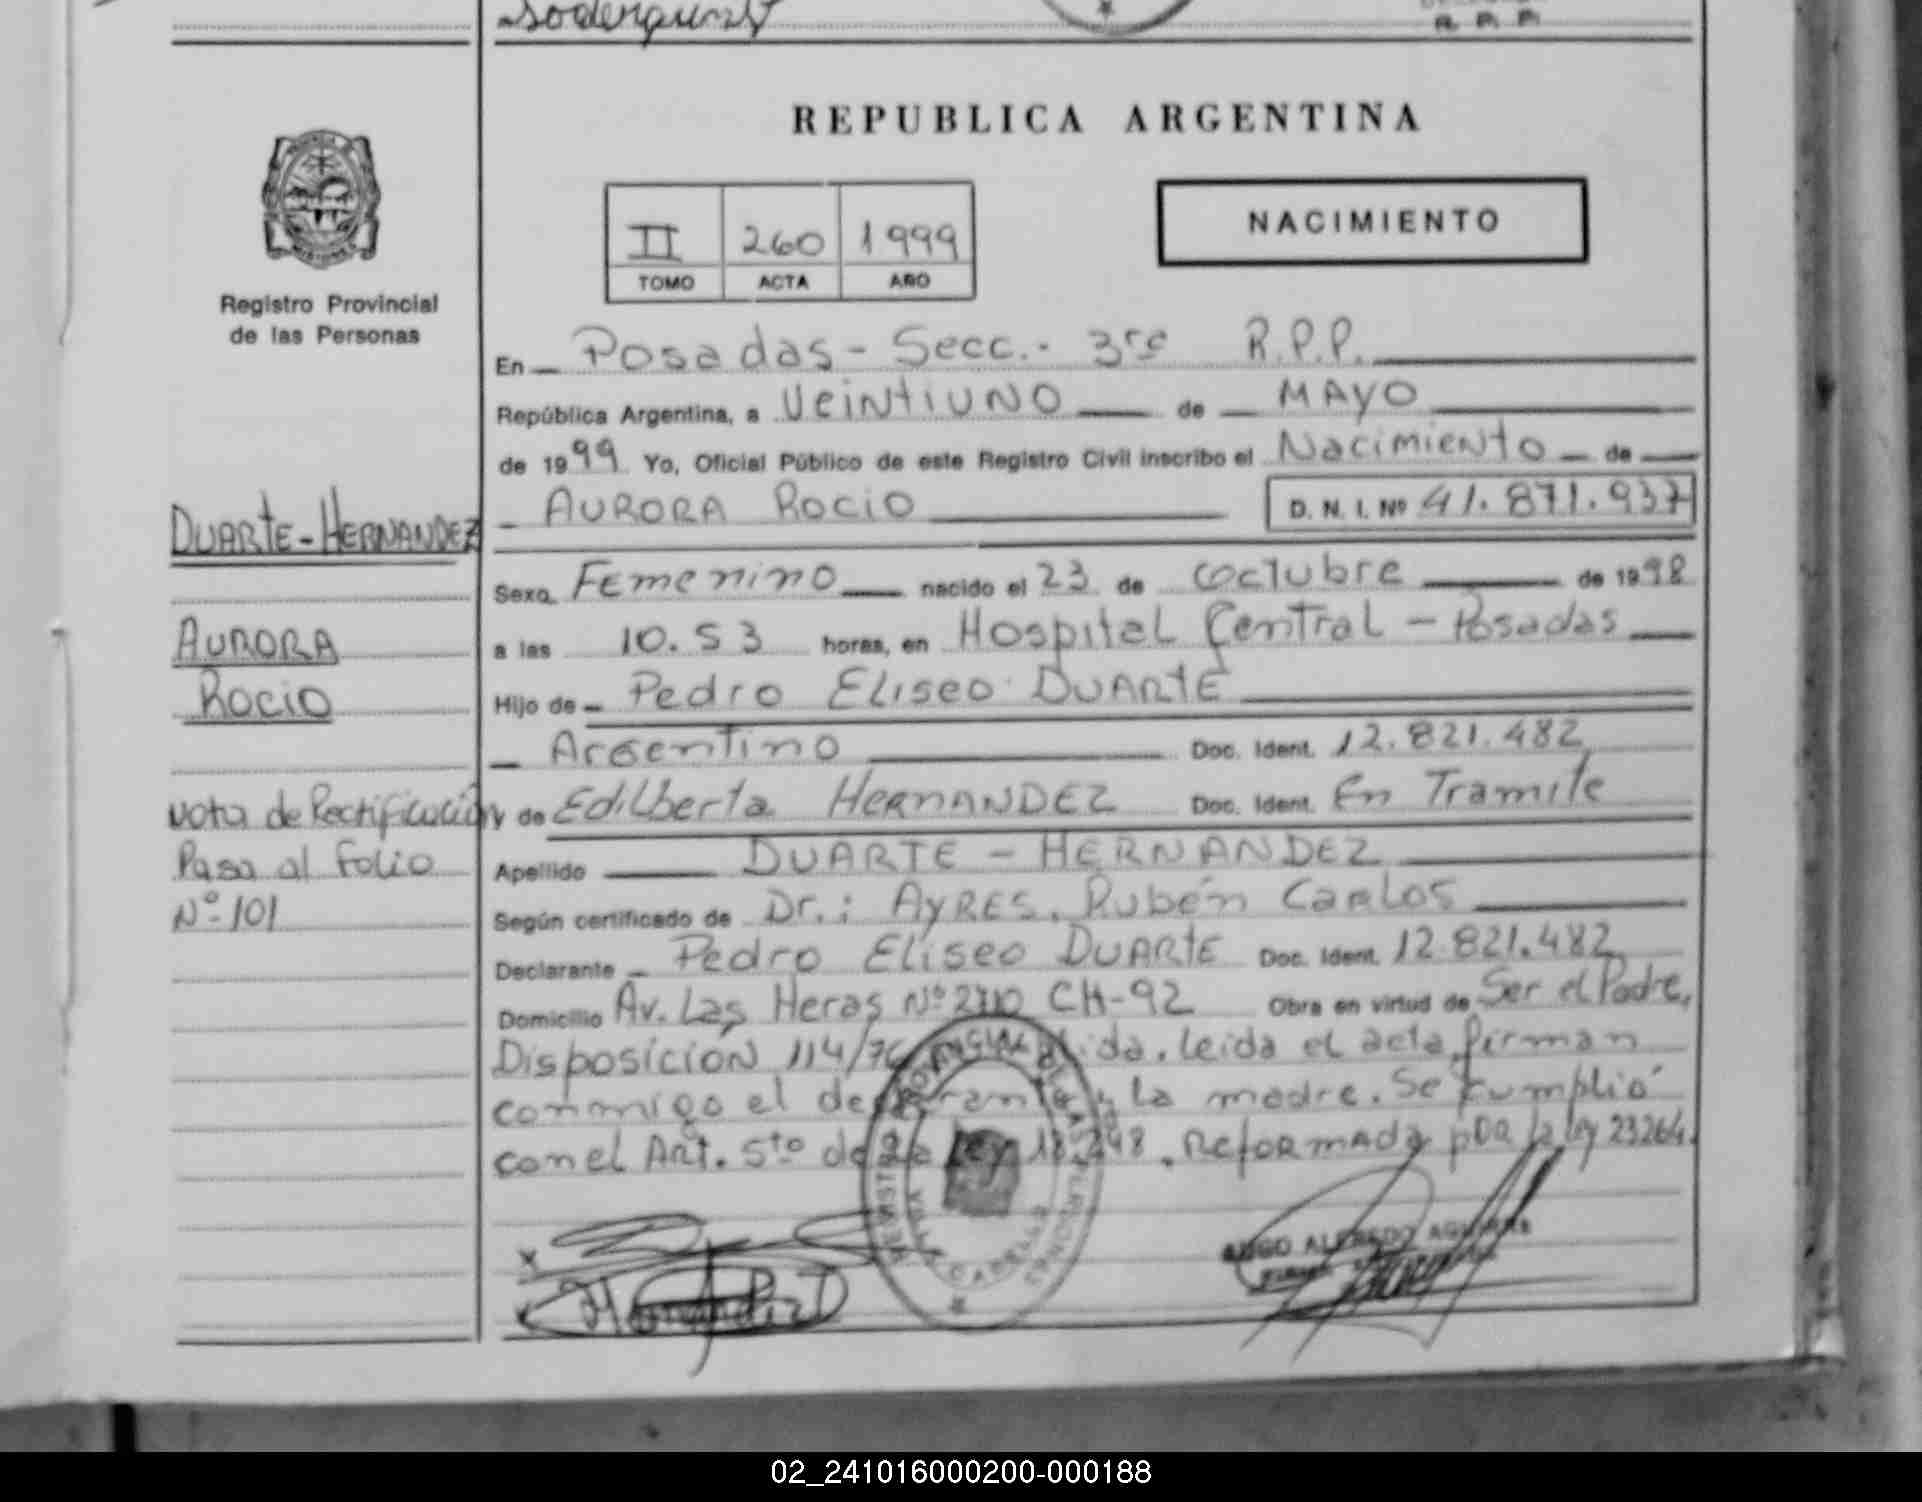 Soderquist
R. P. P.
REPUBLICA ARGENTINA
II 260 1999
TOMO ACTA AÑO
NACIMIENTO
Registro Provincial
de las Personas
En Posadas - Secc. - 3ra R.P.P.
República Argentina, a Veintiuno de MAYO
de 1999 Yo, Oficial Público de este Registro Civil inscribo el Nacimiento de
AURORA ROCIO D. N. I. Nº 41.871.937
DUARTE-HERNANDEZ
AURORA
ROCIO
Nota de Rectificación
Pasa al Folio
Nº 101
Sexo Femenino nacido el 23 de octubre de 1998
a las 10.53 horas, en Hospital Central - Posadas
Hijo de Pedro Eliseo DUARTE
Argentino Doc. Ident. 12.821.482
y de Edilberta HERNANDEZ Doc. Ident. En Tramite
Apellido DUARTE - HERNANDEZ
Según certificado de Dr.: AYRES, Rubén Carlos
Declarante Pedro Eliseo DUARTE Doc. Ident. 12.821.482
Domicilio Av. Las Heras Nº CH-92 Obra en virtud de Ser el Padre,
Disposición 114/76 leida el acta firman
conmigo el declarante y la madre. Se cumplió
con el Art. 5to de la Ley 18.248. Reformada por la ley 23264.
REGISTRO PROVINCIAL DE LAS PERSONAS
VILLA CABELLO
HUGO ALFREDO AGUIRRE
02_241016000200-000188